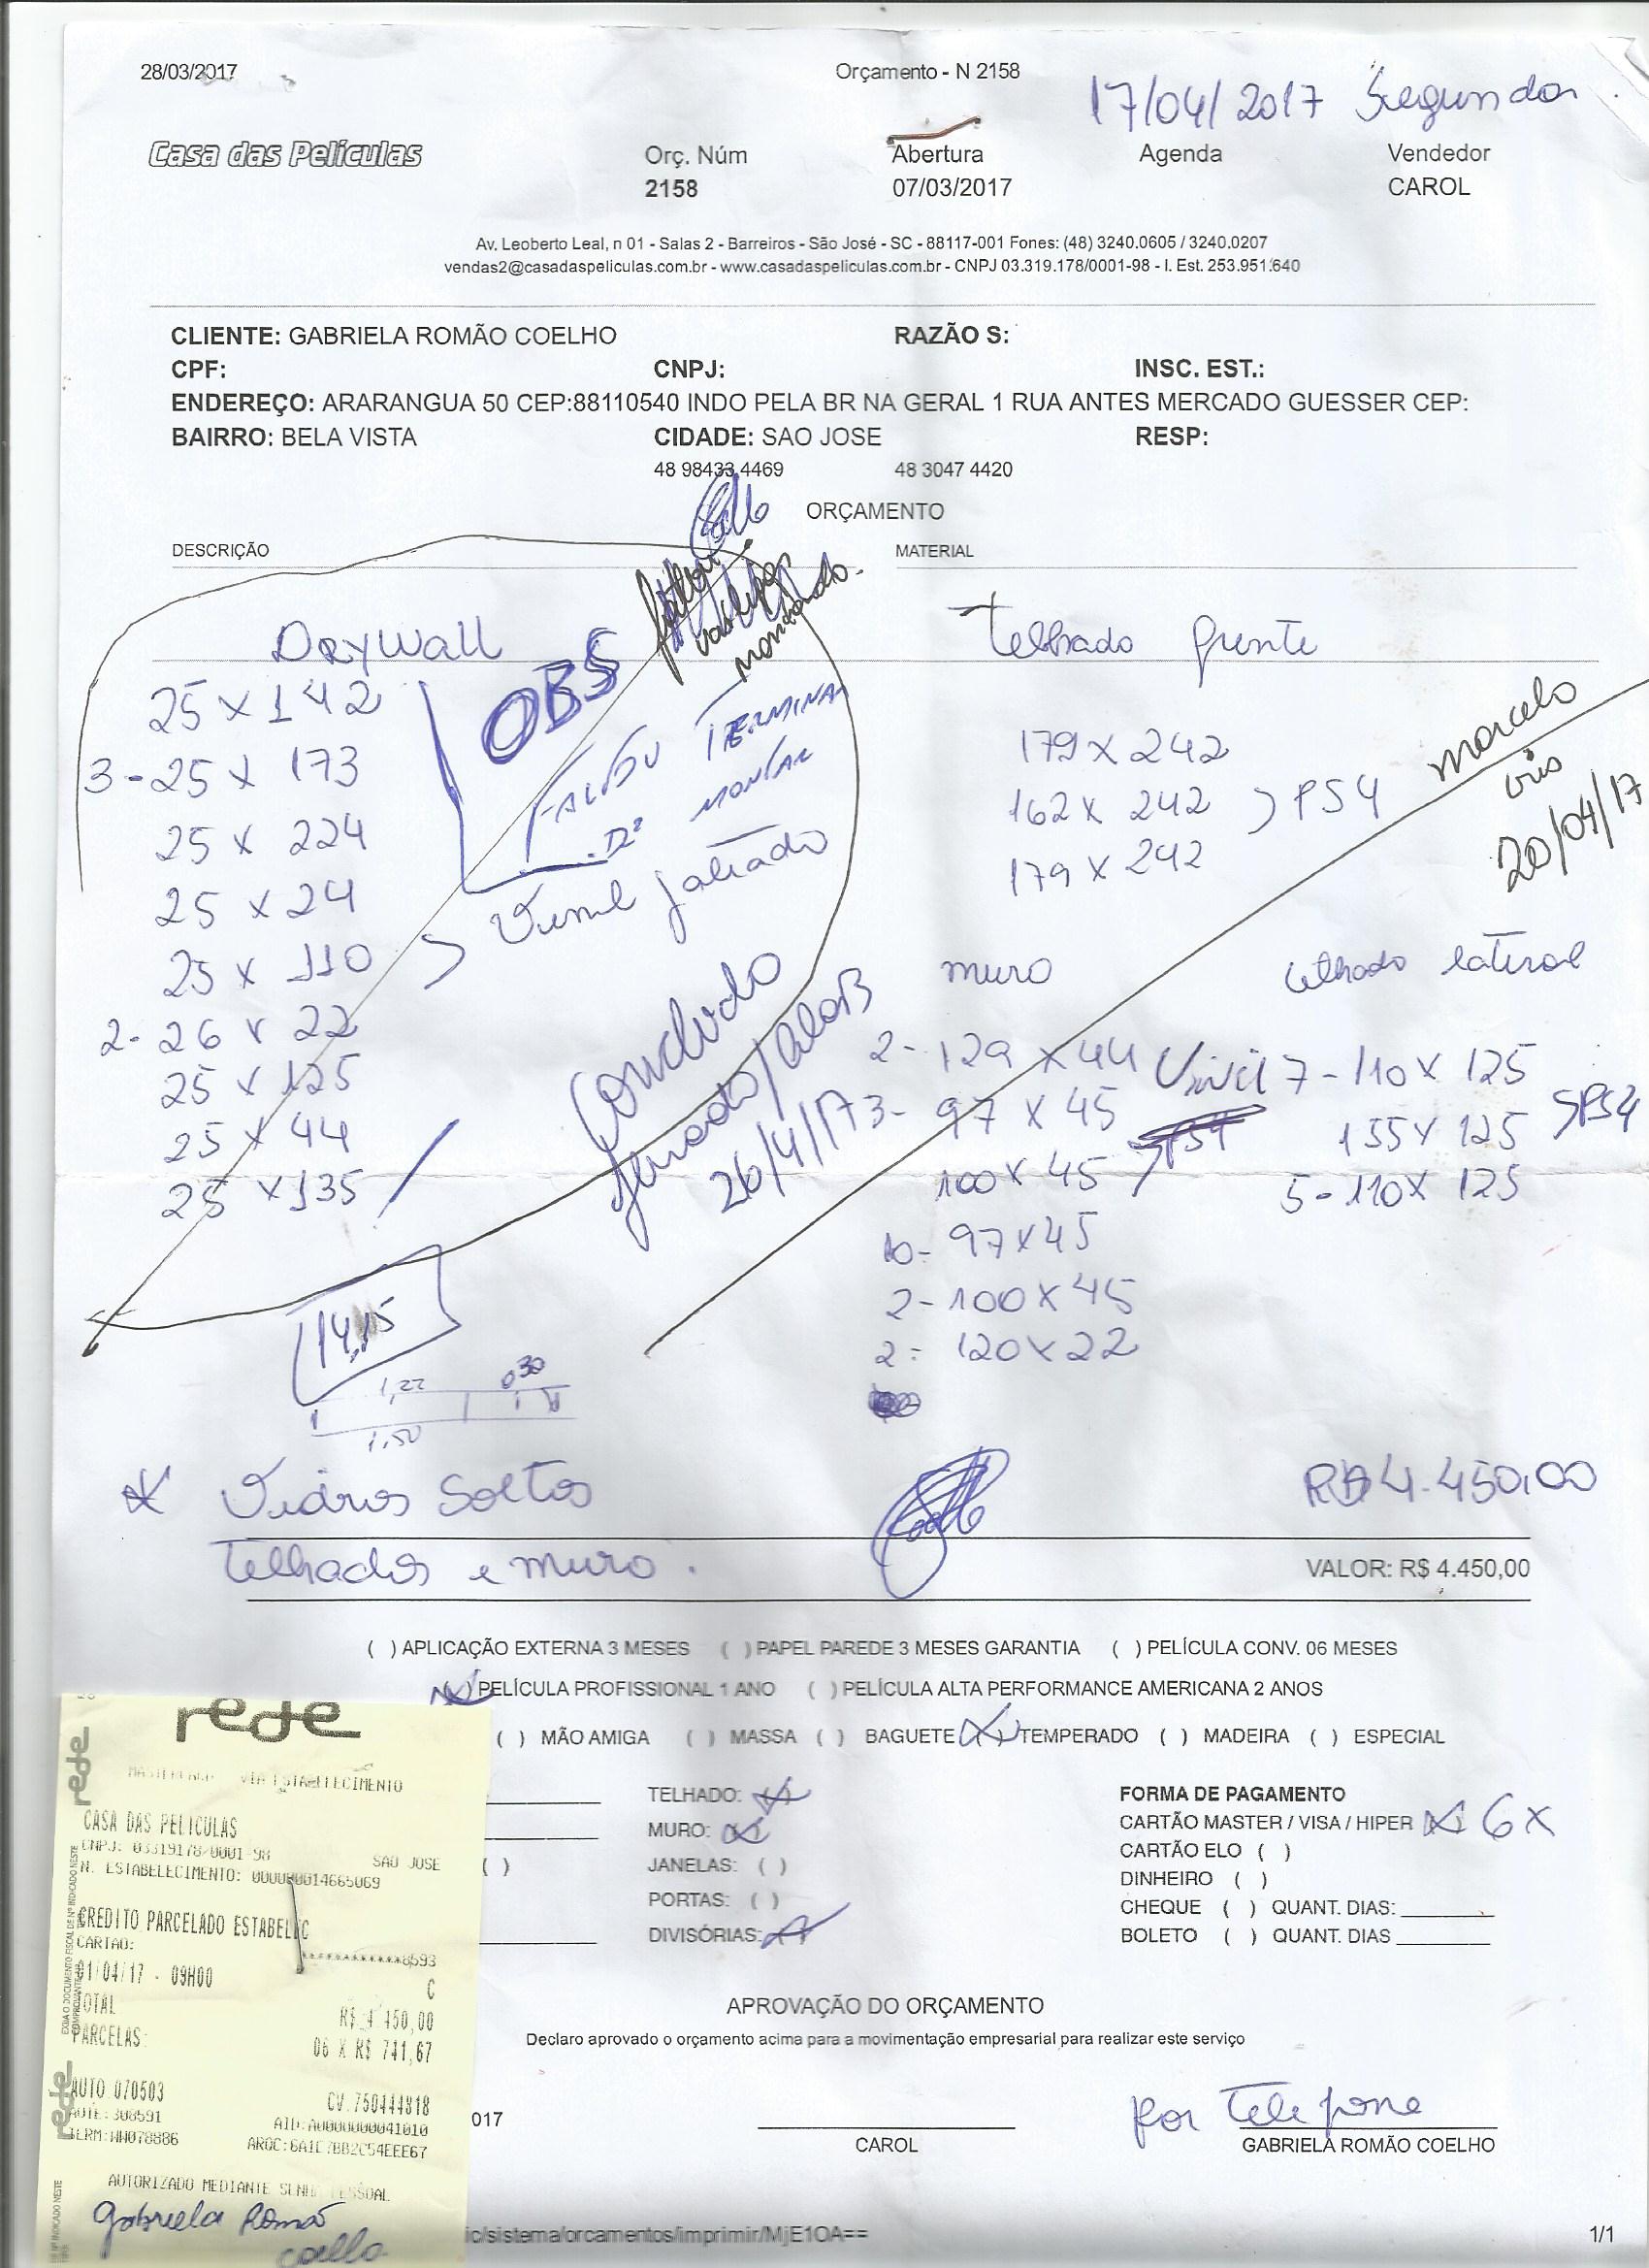 28/03/2017
Orçamento - N 2158
17/04/2017 Segunda
Casa das Películas
Orç. Núm Abertura Agenda Vendedor
2158 07/03/2017 CAROL
Av. Leoberto Leal, n 01 - Salas 2 - Barreiros - São José - SC - 88117-001 Fones: (48) 3240.0605 / 3240.0207
vendas2@casadaspeliculas.com.br - www.casadaspeliculas.com.br - CNPJ 03.319.178/0001-98 - I. Est. 253.951.640
CLIENTE: GABRIELA ROMÃO COELHO RAZÃO S:
CPF: CNPJ: INSC. EST.:
ENDEREÇO: ARARANGUA 50 CEP:88110540 INDO PELA BR NA GERAL 1 RUA ANTES MERCADO GUESSER CEP:
BAIRRO: BELA VISTA CIDADE: SAO JOSE RESP:
48 98433 4469 48 3047 4420
ORÇAMENTO
DESCRIÇÃO MATERIAL
DRYWall
25 x 142
3 - 25 x 173
25 x 224
25 x 24
25 x 110
2 - 26 x 22
25 x 125
25 x 44
25 x 135
OBS
FALTOU TERMINAR
MONTAR
Vinil jateado
Concluido
26/4/17
Telhado frente
179 x 242
162 x 242 PS4
179 x 242
marcelo
20/04/17
muro
2 - 129 x 44 Vinil
3 - 97 x 45
100 x 45
10 - 97 x 45
2 - 100 x 45
2 - 120 x 22
telhado lateral
7 - 110 x 125
155 x 125 PS4
5 - 110 x 125
14,15
1,22 0,30
1,50
* Vidros Soltos
Telhados e muro.
R$ 4.450,00
VALOR: R$ 4.450,00
( ) APLICAÇÃO EXTERNA 3 MESES ( ) PAPEL PAREDE 3 MESES GARANTIA ( ) PELÍCULA CONV. 06 MESES
(X) PELÍCULA PROFISSIONAL 1 ANO ( ) PELÍCULA ALTA PERFORMANCE AMERICANA 2 ANOS
( ) MÃO AMIGA ( ) MASSA ( ) BAGUETE (X) TEMPERADO ( ) MADEIRA ( ) ESPECIAL
TELHADO: (X)
MURO: (X)
JANELAS: ( )
PORTAS: ( )
DIVISÓRIAS: (X)
FORMA DE PAGAMENTO
CARTÃO MASTER / VISA / HIPER (X) 6x
CARTÃO ELO ( )
DINHEIRO ( )
CHEQUE ( ) QUANT. DIAS:
BOLETO ( ) QUANT. DIAS
APROVAÇÃO DO ORÇAMENTO
Declaro aprovado o orçamento acima para a movimentação empresarial para realizar este serviço
017
por Telefone
CAROL GABRIELA ROMÃO COELHO
ic/sistema/orcamentos/imprimir/MjE1OA==
1/1
rede
VIA ESTABELECIMENTO
CASA DAS PELICULAS
CNPJ: 03319178/0001-98
SAO JOSE
N. ESTABELECIMENTO: 000000014665069
CREDITO PARCELADO ESTABELEC
CARTAO:
************8593
01/04/17 - 09H00 C
TOTAL R$ 4 450,00
PARCELAS: 06 X R$ 741,67
AUTO 070503 CV.750444818
AUTE: 308591 AID:A0000000041010
TERM:WW078886
AUTORIZADO MEDIANTE SENHA PESSOAL
Gabriela Romão
Coelho